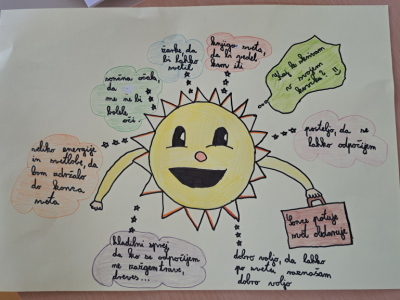 sončna očala,
da
me ne bi
bolele
oči.
žarke, da
bi lahko
svetil
knjigo sveta,
da bi vedel
kam iti
Kaj še skrivam
v svojem
kovčku?
posteljo, da se
lahko odpočijem
veliko energije
in svetlobe, da
bom zdržalo
do konca
sveta
hladilni sprej
da ko se odpočijem
ne zažgem trave,
dreves...
dobro voljo, da lahko
po svetu raznašam
dobro voljo
Sonce potuje
svet obdaruje